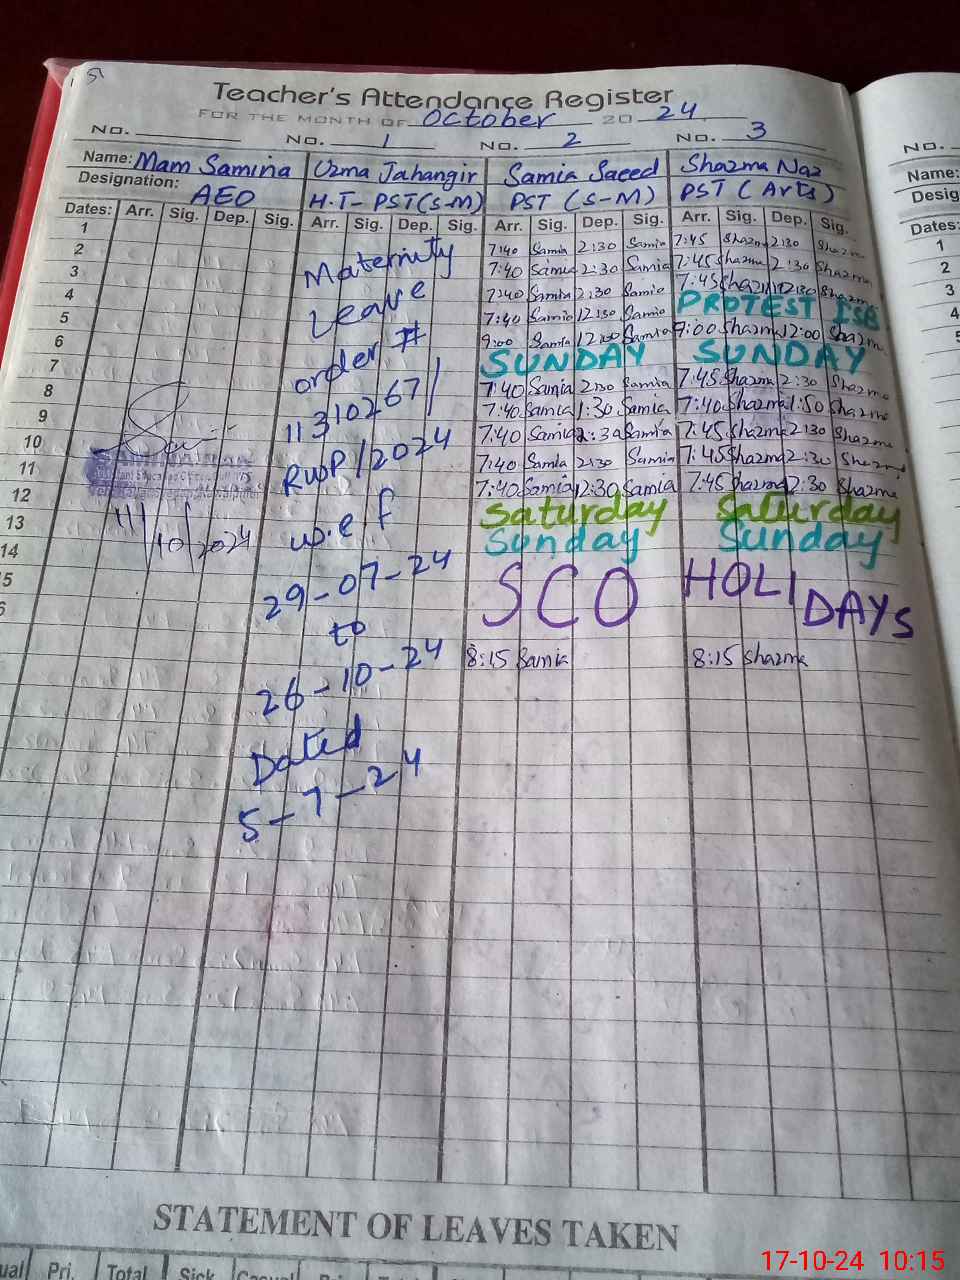 Teacher's Attendance Register
FOR THE MONTH OF October 20 24
No. No. 1 No. 2 No. 3 No.
Name: Mam Samina Uzma Jahangir Samia Saeed Shazma Naz Name:
Designation: AEO H.T- PST(S-M) PST (S-M) PST (Arts) Desig
Dates: Arr. Sig. Dep. Sig. Arr. Sig. Dep. Sig. Arr. Sig. Dep. Sig. Arr. Sig. Dep. Sig. Dates:
1 7:40 Samia 2:30 Samia 7:45 Shazma 2:30 Shazma 1
2 7:40 Samia 2:30 Samia 7:45 Shazma 2:30 Shazma 2
3 7:40 Samia 2:30 Samia 7:45 Shazma 12:30 Shazma 3
4 7:40 Samia 12:30 Samia PROTEST ISB 4
5 9:00 Samia 12:00 Samia 9:00 Shazma 12:00 Shazma 5
6 SUNDAY SUNDAY
7 7:40 Samia 2:30 Samia 7:45 Shazma 2:30 Shazma
8 7:40 Samia 1:30 Samia 7:40 Shazma 1:50 Shazma
9 7:40 Samia 2:30 Samia 7:45 Shazma 2:30 Shazma
10 7:40 Samia 2:30 Samia 7:45 Shazma 2:30 Shazma
11 7:40 Samia 12:30 Samia 7:45 Shazma 2:30 Shazma
12 Saturday Saturday
13 Sunday Sunday
14 SCO HOLIDAYS
5
6
8:15 Samia 8:15 Shazma
Maternity
Leave
order #
11310267/
RWP/2024
w.e.f
29-07-24
to
26-10-24
Dated
5-7-24
11/10/2024
STATEMENT OF LEAVES TAKEN
ual Pri. Total Sick Casual
17-10-24 10:15